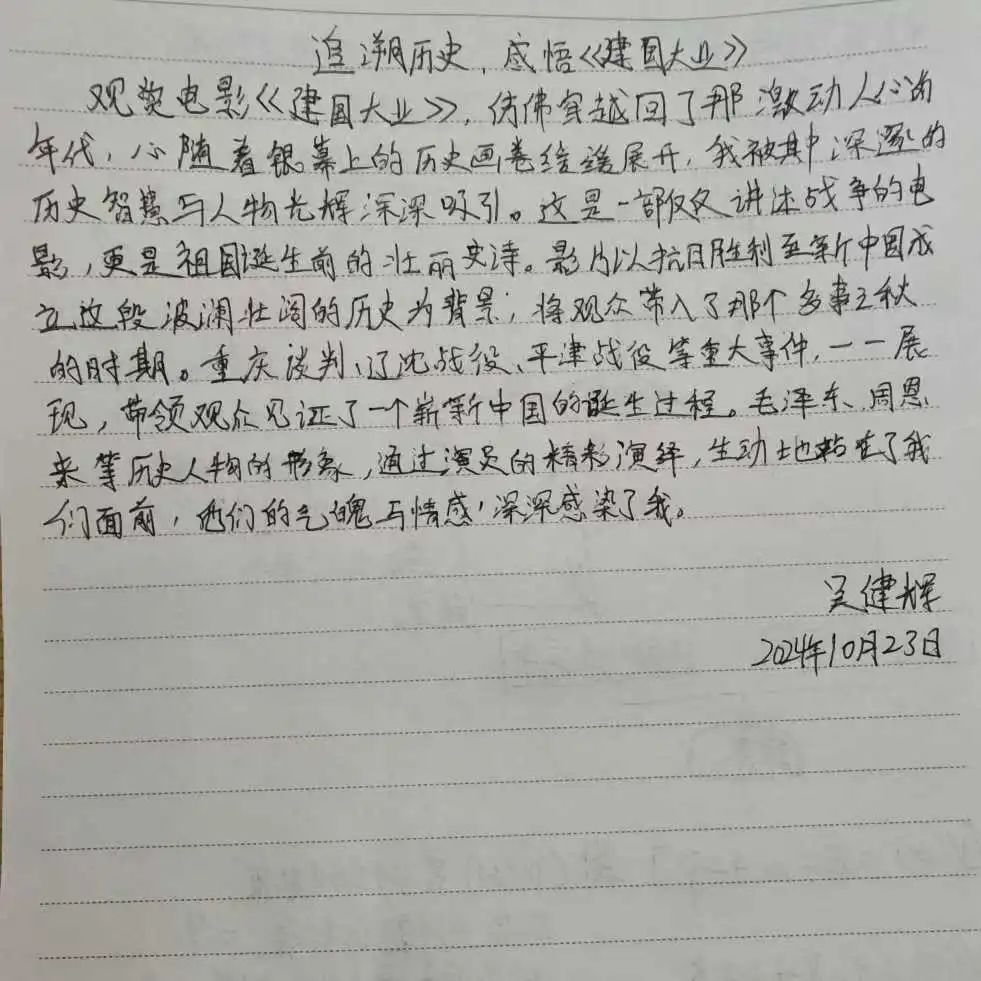 追溯历史，感悟《建国大业》
观赏电影《建国大业》，仿佛穿越回了那激动人心的
年代，心随着银幕上的历史画卷徐徐展开，我被其中深邃的
历史智慧与人物光辉深深吸引。这是一部仅仅讲述战争的电
影，更是祖国诞生前的壮丽史诗。影片以抗日胜利至新中国成
立这段波澜壮阔的历史为背景，将观众带入了那个多事之秋
的时期。重庆谈判、辽沈战役、平津战役等重大事件，一一展
现，带领观众见证了一个崭新中国的诞生过程。毛泽东、周恩
来等历史人物的形象，通过演员的精彩演绎，生动地站在了我
们面前，他们的气魄与情感，深深感染了我。
吴健辉
2024年10月23日